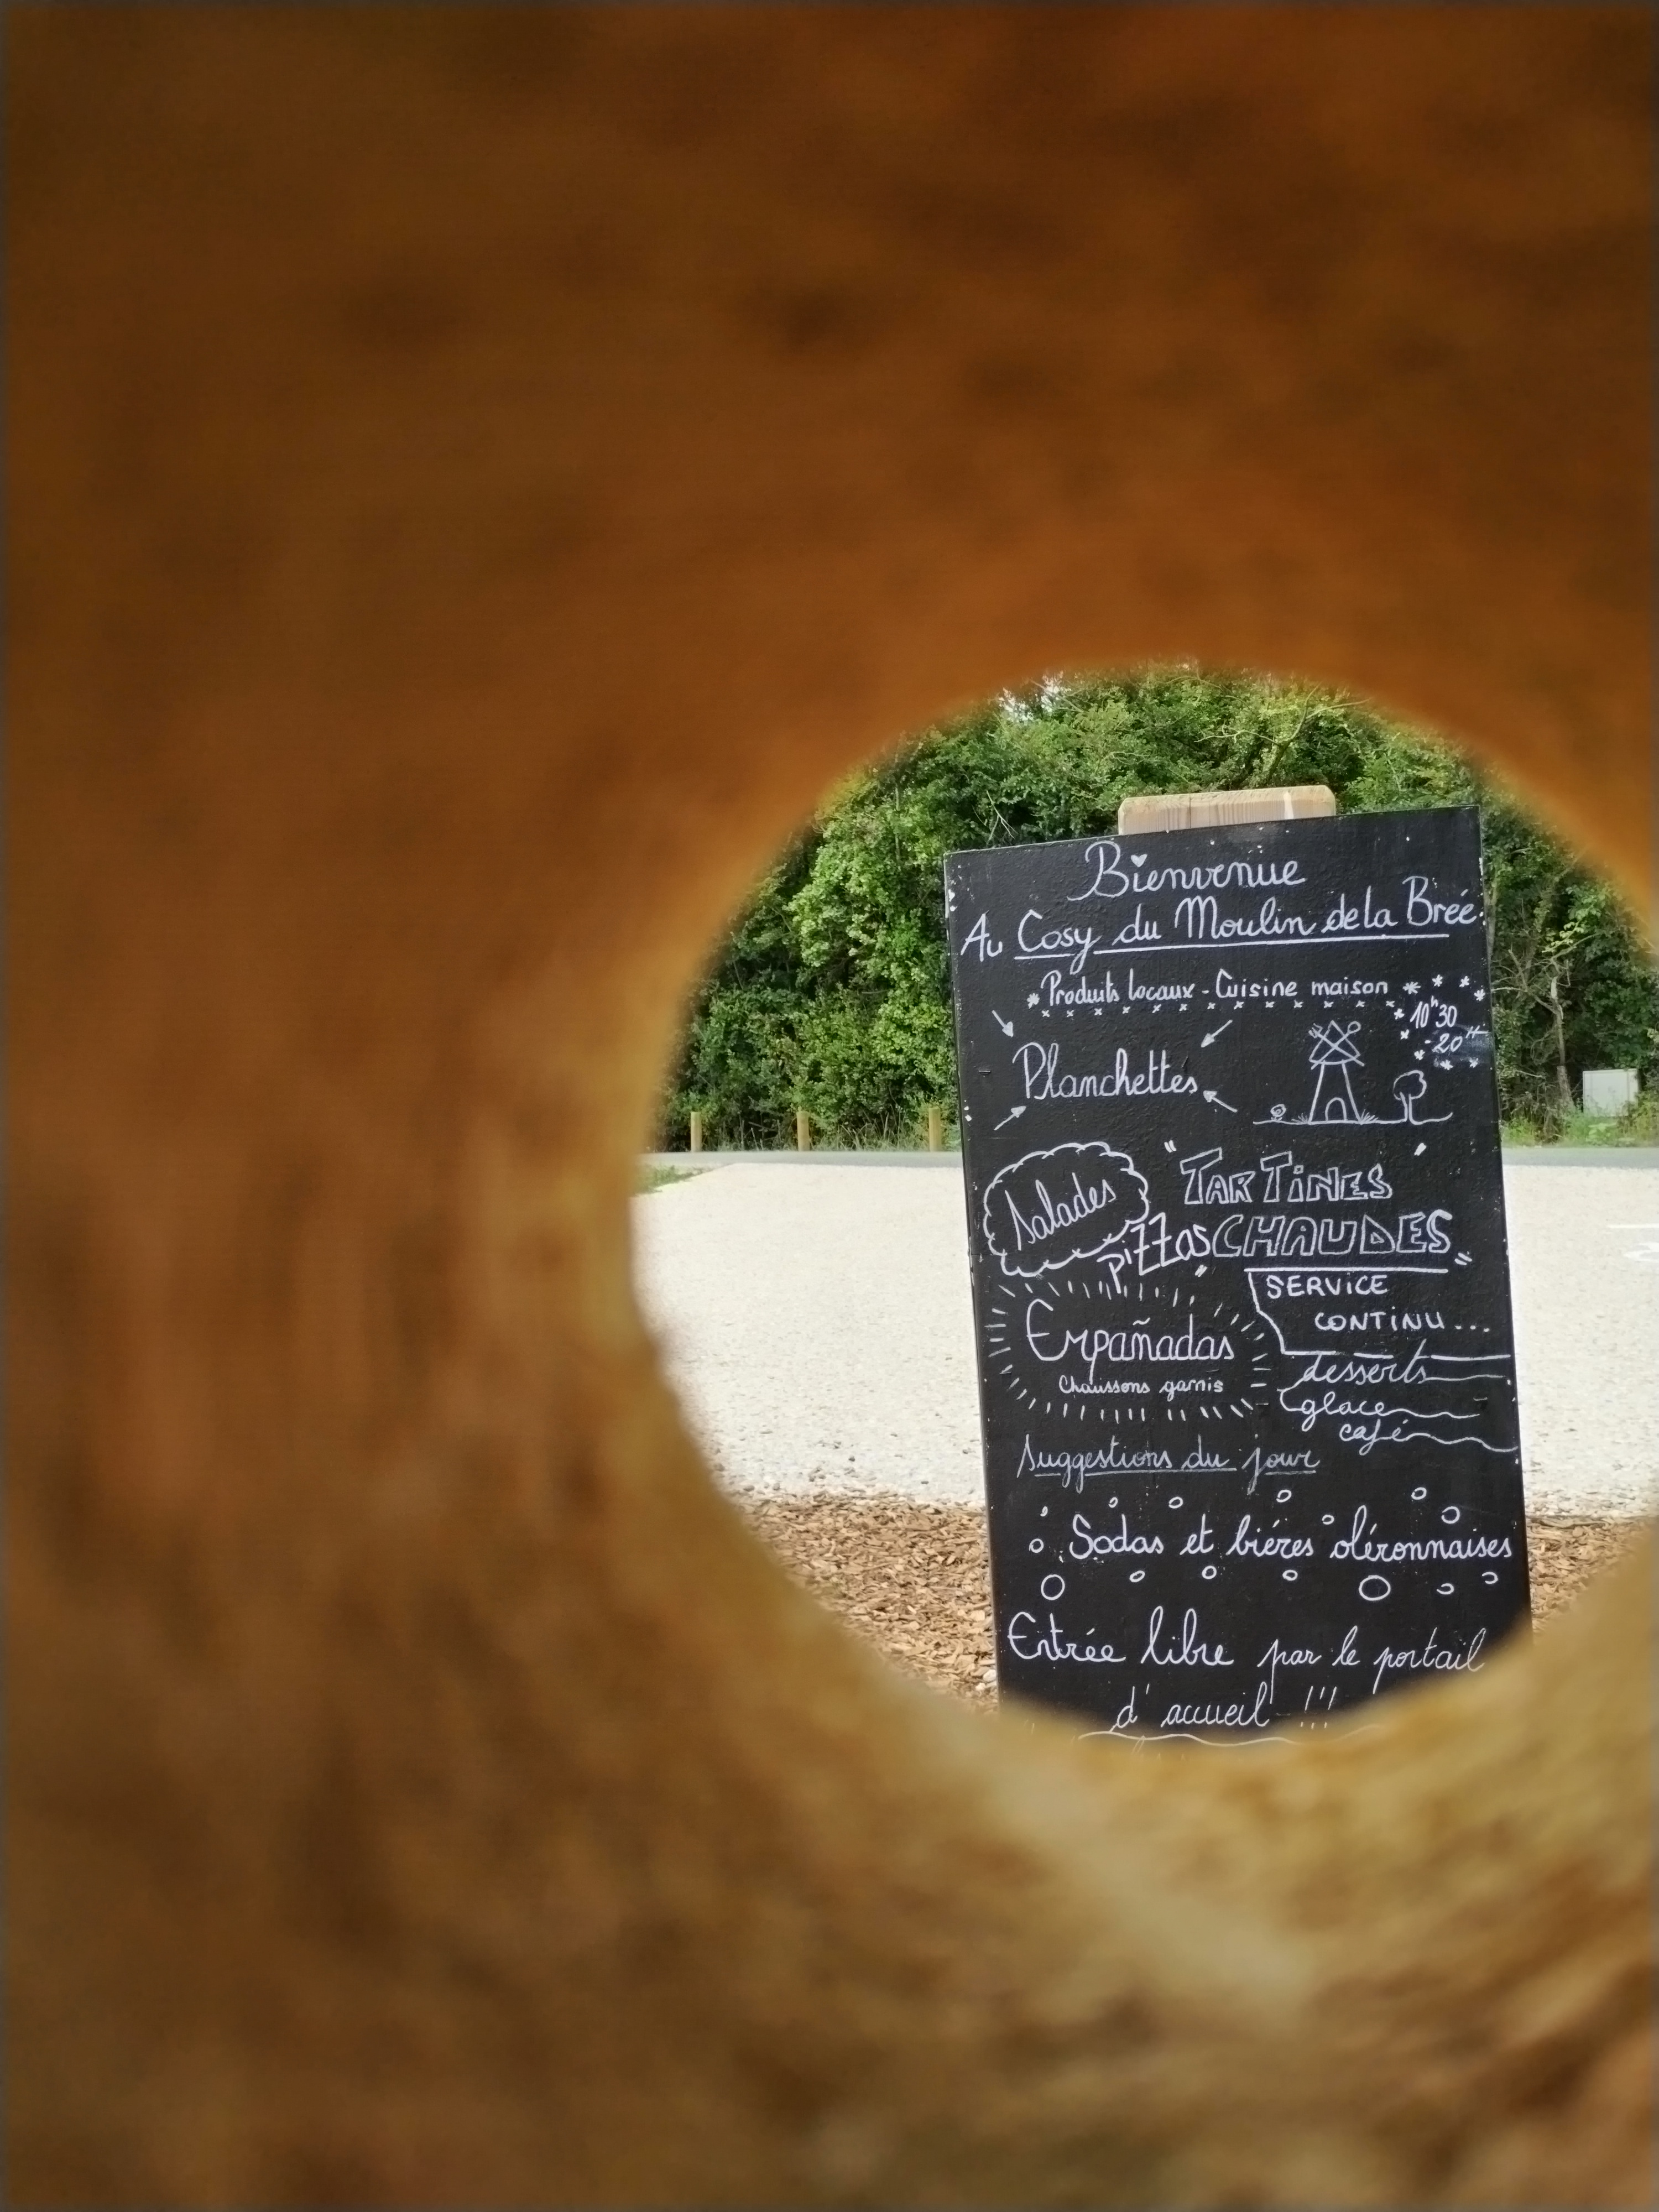 Bienvenue
Au Cosy du Moulin de la Brée
Produits locaux - Cuisine maison
10h30
-20H
Planchettes
Salades
"TARTINES
CHAUDES"
Pizzas
SERVICE
CONTINU...
Empañadas
Chaussons garnis
desserts
glace
café
Suggestions du jour
Sodas et bières oléronnaises
Entrée libre par le portail
d'accueil !!!